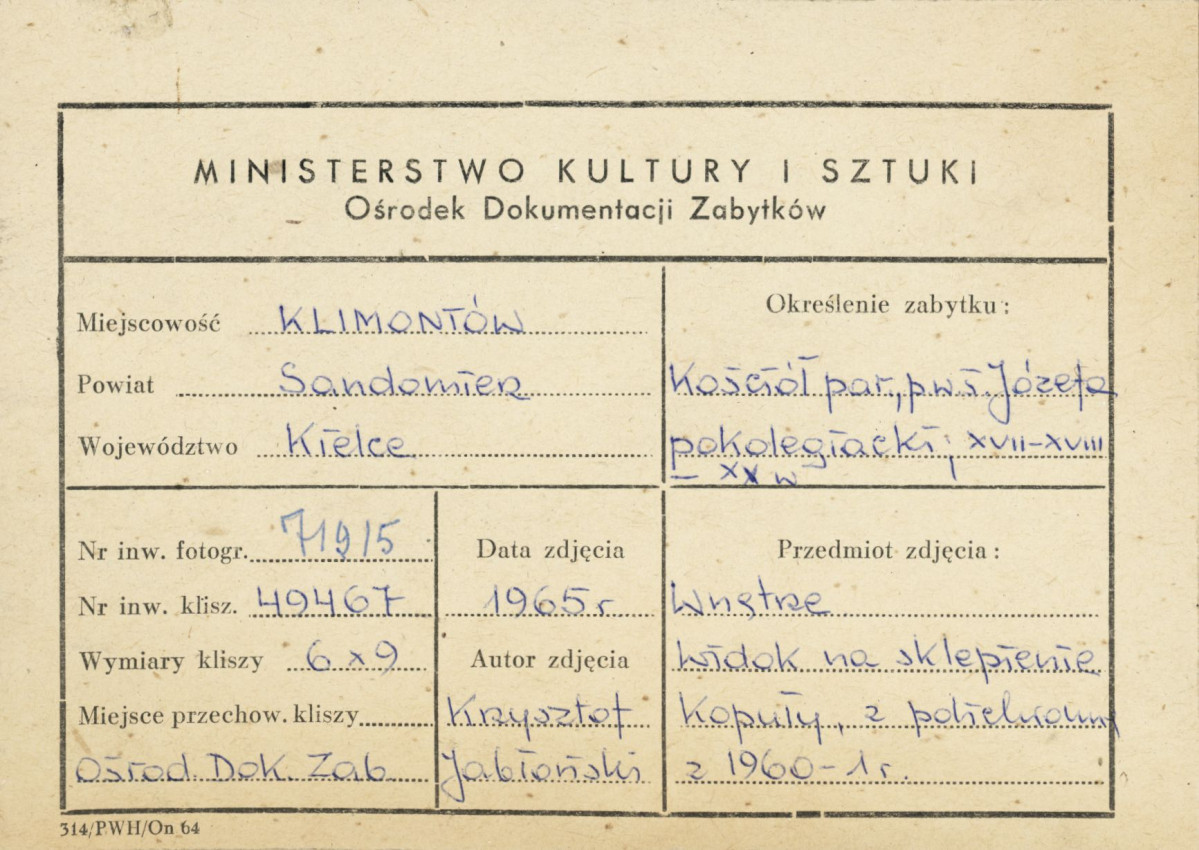 MINISTERSTWO KULTURY I SZTUKI
Ośrodek Dokumentacji Zabytków
Miejscowość KLIMONTÓW
Powiat Sandomierz
Województwo Kielce
Określenie zabytku:
Kościół par., p.w.ś. Józefa
pokolegiacki; XVII-XVIII
- XX w
Nr inw. fotogr. 719/5
Nr inw. klisz. 49467
Wymiary kliszy 6 x 9
Miejsce przechow. kliszy
Ośrod. Dok. Zab.
Data zdjęcia
1965 r
Autor zdjęcia
Krzysztof
Jabłoński
Przedmiot zdjęcia:
Wnętrze
widok na sklepienie
Kopuły, z
z 1960-1 r.
314/PWH/On 64